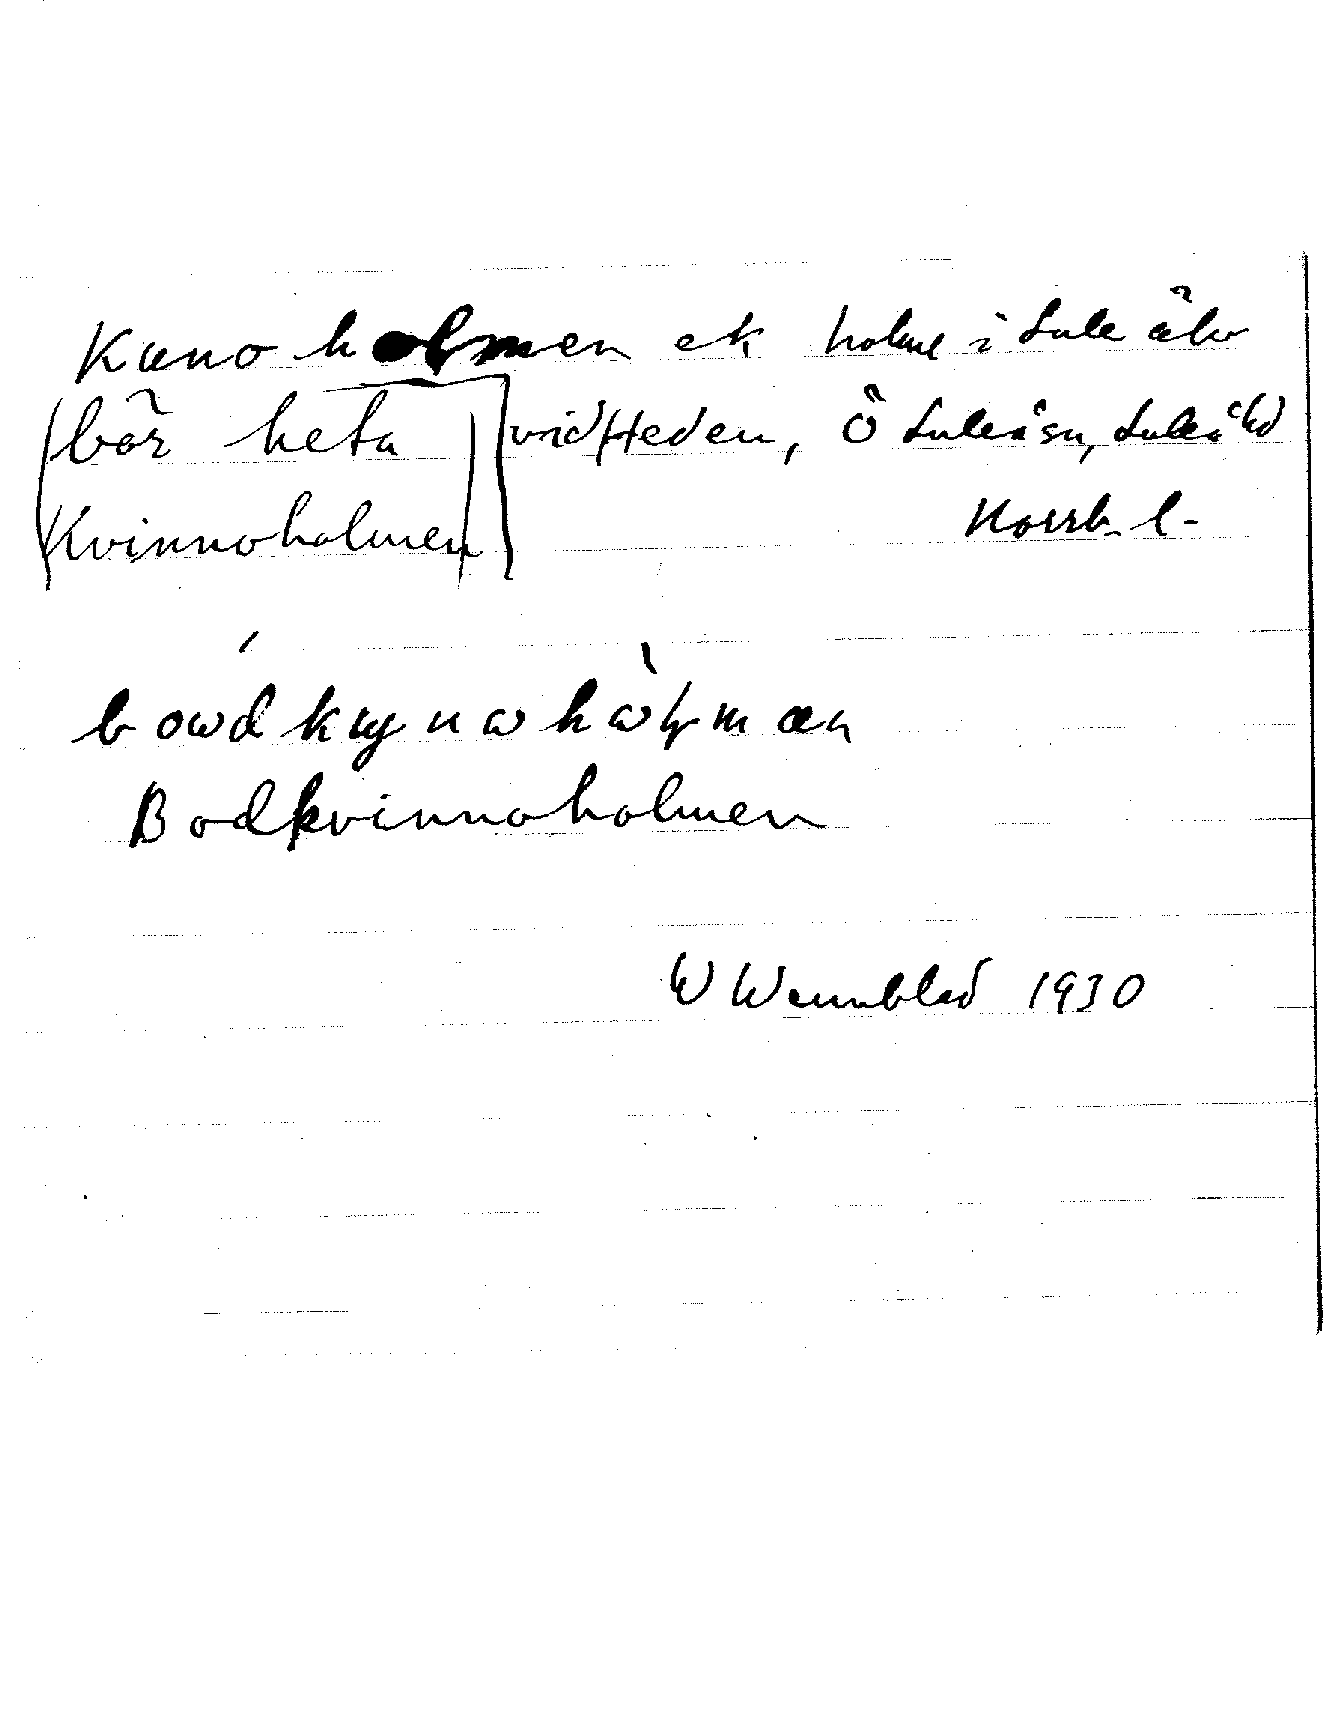 Kunoholmen ek holme i Lule älv
(bör heta vid Heden, Ö Luleå sn, Luleå hd
Kvinnoholmen) Norrb. l.
bowdkwynwhwlmæn
Bodkvinnoholmen
W Wennblad 1930